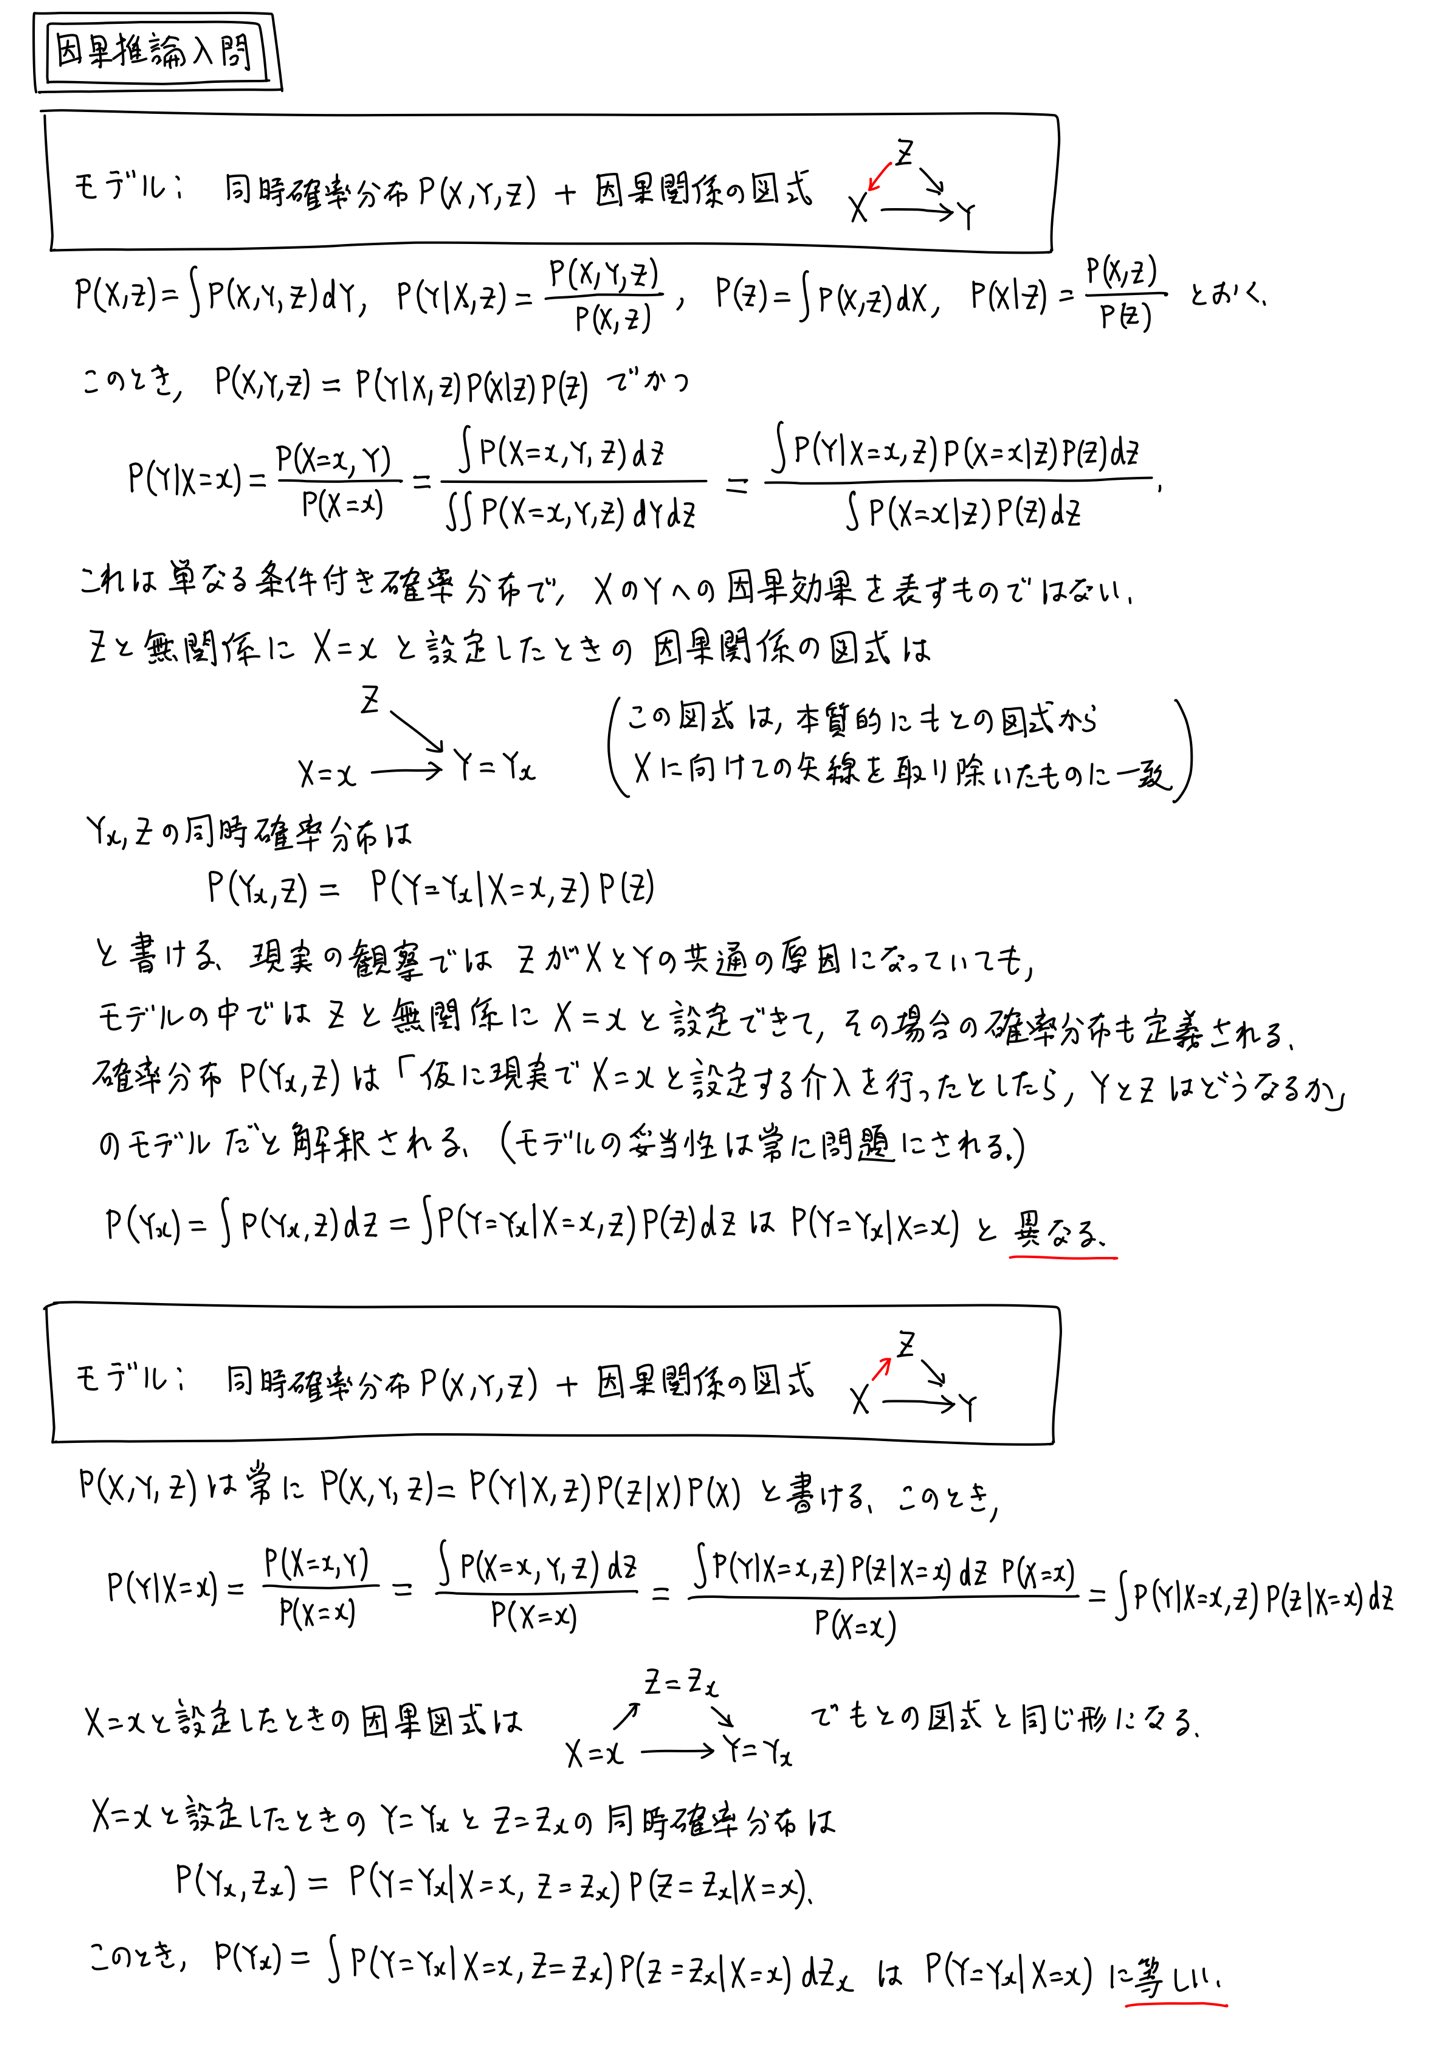 因果推論入門
モデル: 同時確率分布 P(X,Y,Z) + 因果関係の図式 Z X → Y
P(X,Z) = ∫P(X,Y,Z)dY, P(Y|X,Z) = P(X,Y,Z)/P(X,Z), P(Z) = ∫P(X,Z)dX, P(X|Z) = P(X,Z)/P(Z) とおく.
このとき, P(X,Y,Z) = P(Y|X,Z)P(X|Z)P(Z) でかつ
P(Y|X=x) = P(X=x,Y)/P(X=x) = ∫P(X=x,Y,Z)dZ/∬P(X=x,Y,Z)dYdZ = ∫P(Y|X=x,Z)P(X=x|Z)P(Z)dZ/∫P(X=x|Z)P(Z)dZ.
これは単なる条件付き確率分布で, XのYへの因果効果を表すものではない.
Zと無関係に X=x と設定したときの因果関係の図式は
Z
X=x → Y=Yx
(この図式は, 本質的にもとの図式から
Xに向けての矢線を取り除いたものに一致)
Yx, Zの同時確率分布は
P(Yx,Z) = P(Y=Yx|X=x,Z)P(Z)
と書ける. 現実の観察では ZがXとYの共通の原因になっていても,
モデルの中では Zと無関係に X=x と設定できて, その場合の確率分布も定義される.
確率分布 P(Yx,Z) は「仮に現実で X=x と設定する介入を行ったとしたら, YとZはどうなるか」
のモデルだと解釈される. (モデルの妥当性は常に問題にされる.)
P(Yx) = ∫P(Yx,Z)dZ = ∫P(Y=Yx|X=x,Z)P(Z)dZ は P(Y=Yx|X=x) と 異なる.
モデル: 同時確率分布 P(X,Y,Z) + 因果関係の図式 Z X → Y
P(X,Y,Z) は常に P(X,Y,Z) = P(Y|X,Z)P(Z|X)P(X) と書ける. このとき,
P(Y|X=x) = P(X=x,Y)/P(X=x) = ∫P(X=x,Y,Z)dZ/P(X=x) = ∫P(Y|X=x,Z)P(Z|X=x)dZ P(X=x)/P(X=x) = ∫P(Y|X=x,Z)P(Z|X=x)dZ
X=xと設定したときの因果図式は Z=Zx X=x → Y=Yx でもとの図式と同じ形になる.
X=xと設定したときの Y=Yx と Z=Zxの同時確率分布は
P(Yx,Zx) = P(Y=Yx|X=x, Z=Zx)P(Z=Zx|X=x).
このとき, P(Yx) = ∫P(Y=Yx|X=x, Z=Zx)P(Z=Zx|X=x)dZx は P(Y=Yx|X=x) に等しい.